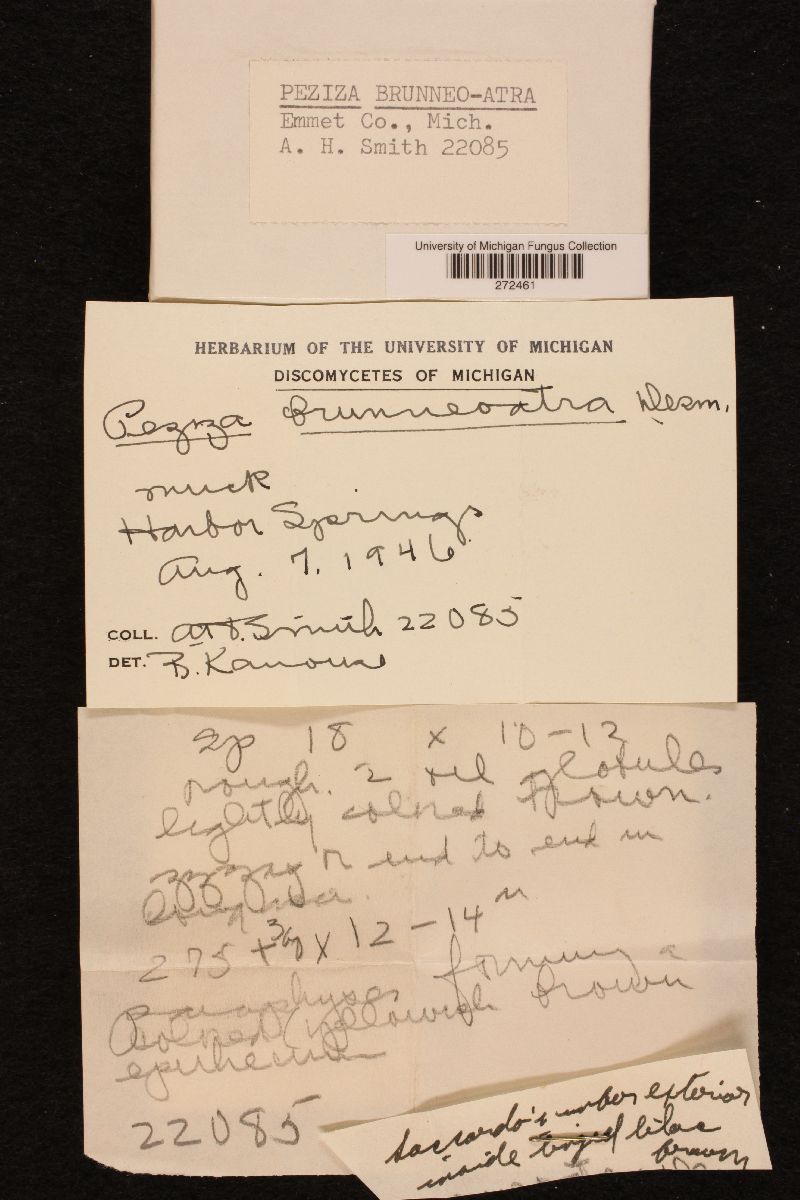 PEZIZA BRUNNEO-ATRA
Emmet Co., Mich.
A. H. Smith 22085
University of Michigan Fungus Collection
272461
HERBARIUM OF THE UNIVERSITY OF MICHIGAN
DISCOMYCETES OF MICHIGAN
Peziza brunneoatra Desm.
muck
Harbor Springs
Aug. 7, 1946
COLL. A.H. Smith 22085
DET. B. Kanouse
Sp 18 x 10-12
rough. 2 oil globules
lightly colored brown.
zigzag or end to end in
275 + 30 x 12-14 u
paraphyses forming a
colored yellowish brown
epithecium
22085
Saccardo's umber exterior
inside lilac
brown